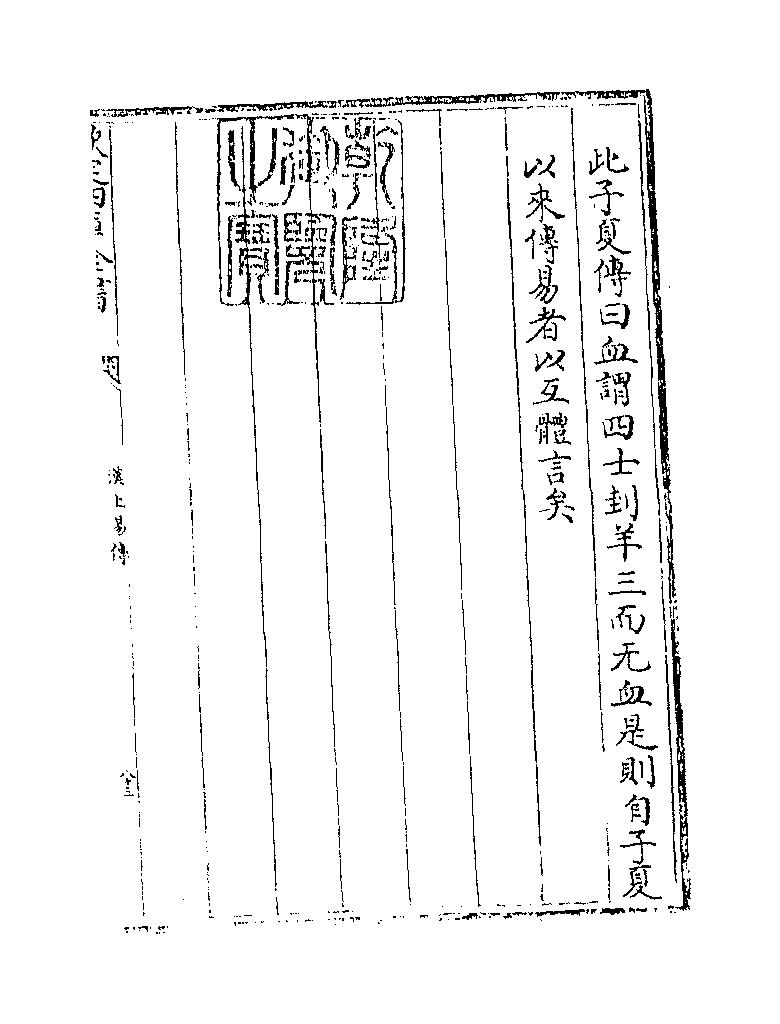 此子夏傳曰血謂四士刲羊三而无血是則自子夏
以來傳易者以互體言矣
乾隆御覽之寶
欽定四庫全書
漢上易傳